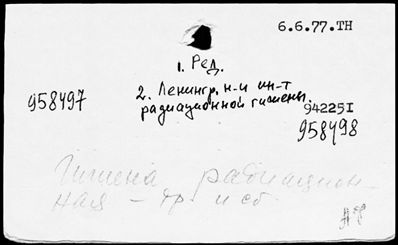 6.6.77.ТН
1. Ред.
2. Ленингр. н-и ин-т
радиационной гигиены.
958497
94225I
958498
Гигиена радиацион-
ная - тр. и сб